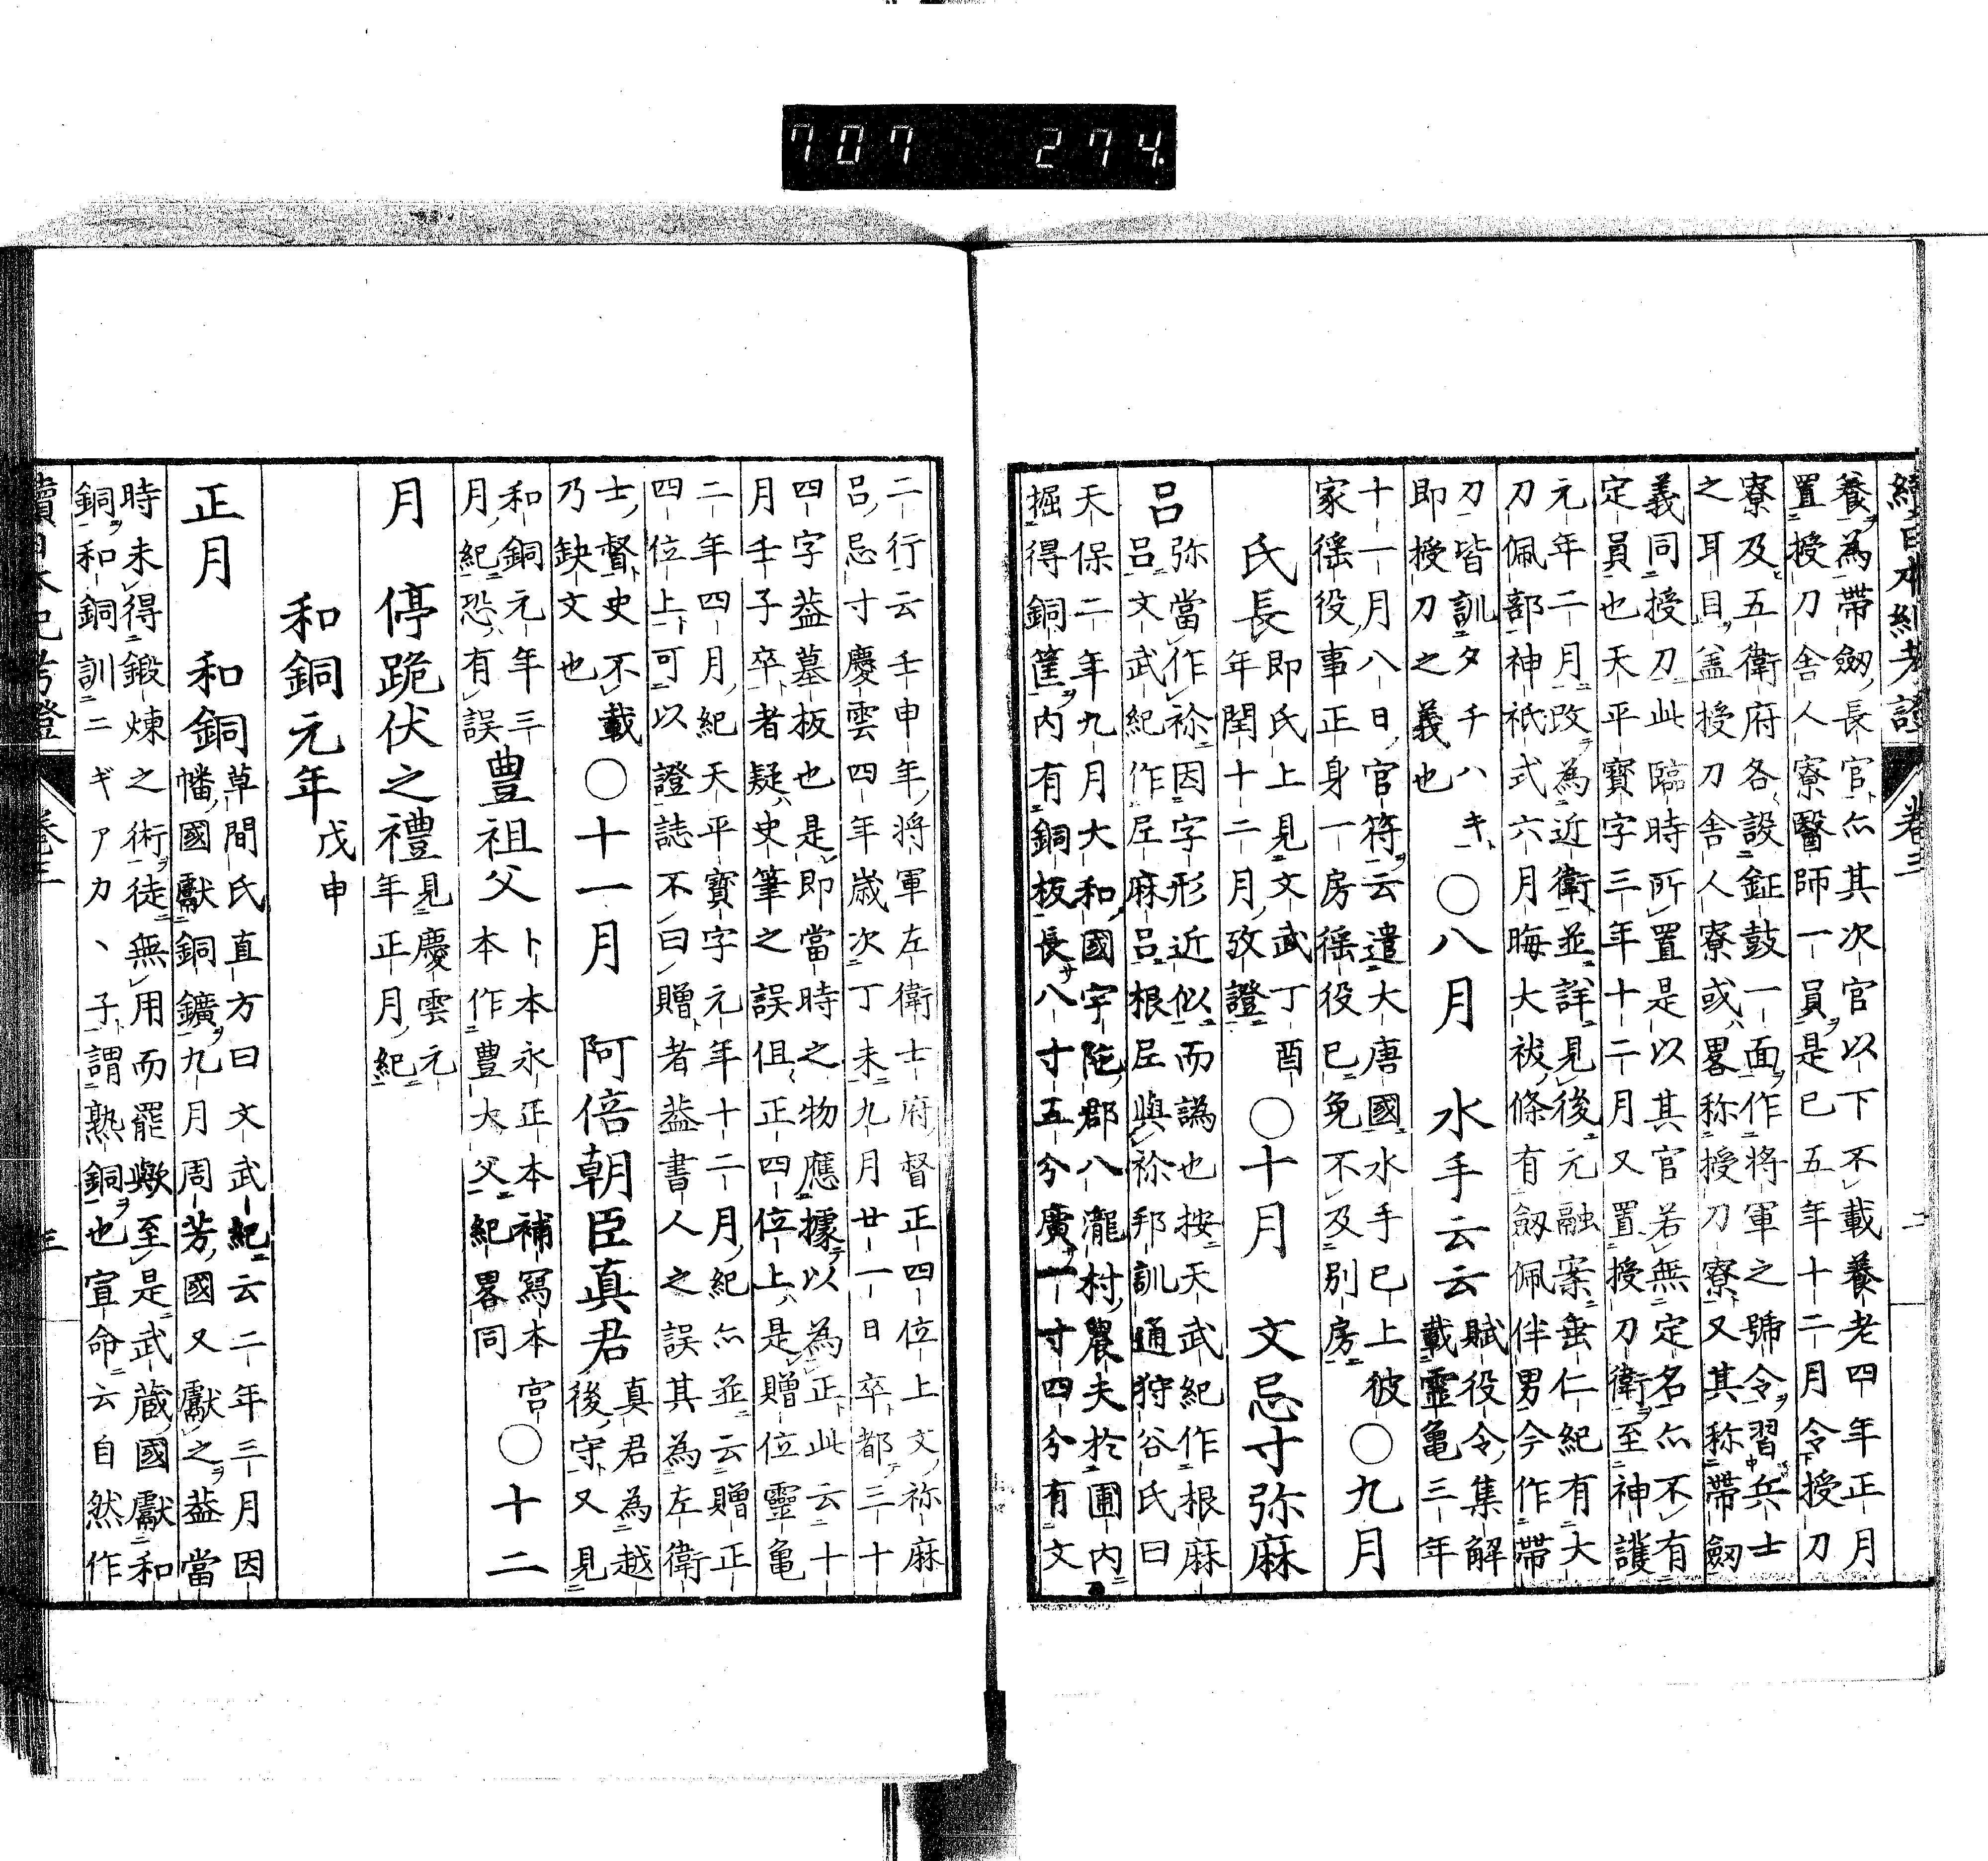 707 274.
續日本紀考證 卷三 二
養為帶劔長官亦其次官以下不載養老四年正月
置授刀舍人寮醫師一員是已五年十二月令授刀
寮及五衛府各設鉦鼓一面作將軍之號令習兵士
之耳目盖授刀舍人寮或畧称授刀寮又其称帶劔
義同授刀此臨時所置是以其官若無定名亦不有
定員也天平寶字三年十二月又置授刀衛至神護
元年二月改為近衛並詳見後元融案垂仁紀有大
刀佩部神祇式六月晦大祓條有劔佩伴男今作帶
刀皆訓タチハキ
即授刀之義也
〇八月 水手云云
賦役令集解
載靈亀三年
十一月八日官符云遣大唐國水手已上彼
家徭役事正身一房徭役已免不及別房
〇九月
氏長
即氏上見文武丁酉
年閏十二月攷證
〇十月 文忌寸弥麻
呂
弥當作袮因字形近似而譌也按天武紀作根麻
呂文武紀作尼麻呂根尼與袮邦訓通狩谷氏曰
天保二年九月大和國宇陀郡八瀧村農夫於圃内
掘得銅筐内有銅板長八寸五分廣一寸四分有文
二行云壬申年将軍左衛士府督正四位上文祢麻
呂忌寸慶雲四年歳次丁未九月廿一日卒都三十
四字葢墓板也是即當時之物應據以為正此云十
月壬子卒者疑史筆之誤伹正四位上是贈位靈亀
二年四月紀天平寳字元年十二月紀亦並云贈正
四位上可以證誌不曰贈者葢書人之誤其為左衛
士督史不載
乃缺文也
〇十一月 阿倍朝臣真君
真君為越
後守又見
和銅元年三
月紀恐有誤
豊祖父
卜本永正本補寫本宫
本作豊大父紀畧同
〇十二
月 停跪伏之禮
見慶雲元
年正月紀
和銅元年 戊申
正月 和銅
草間氏直方曰文武紀云二年三月因
幡國獻銅鑛九月周芳國又獻之葢當
時未得鍛煉之術徒無用而罷歟至是武蔵國獻和
銅和銅訓ニギアカヽ子謂熟銅也宣命云自然作
續日本紀考證 卷三 三